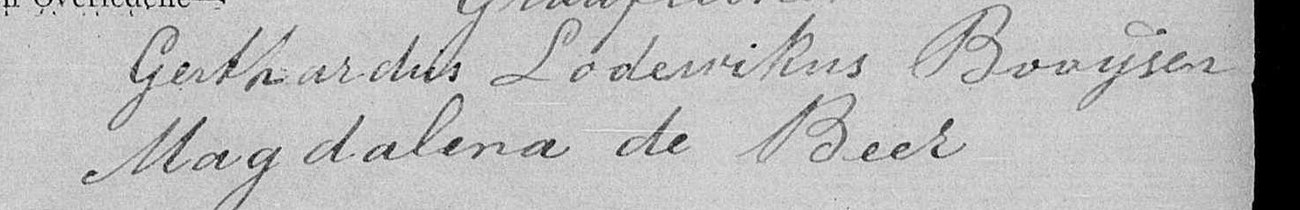 Overledene
Gerthardus Lodewikus Booysen
Magdalena de Beer